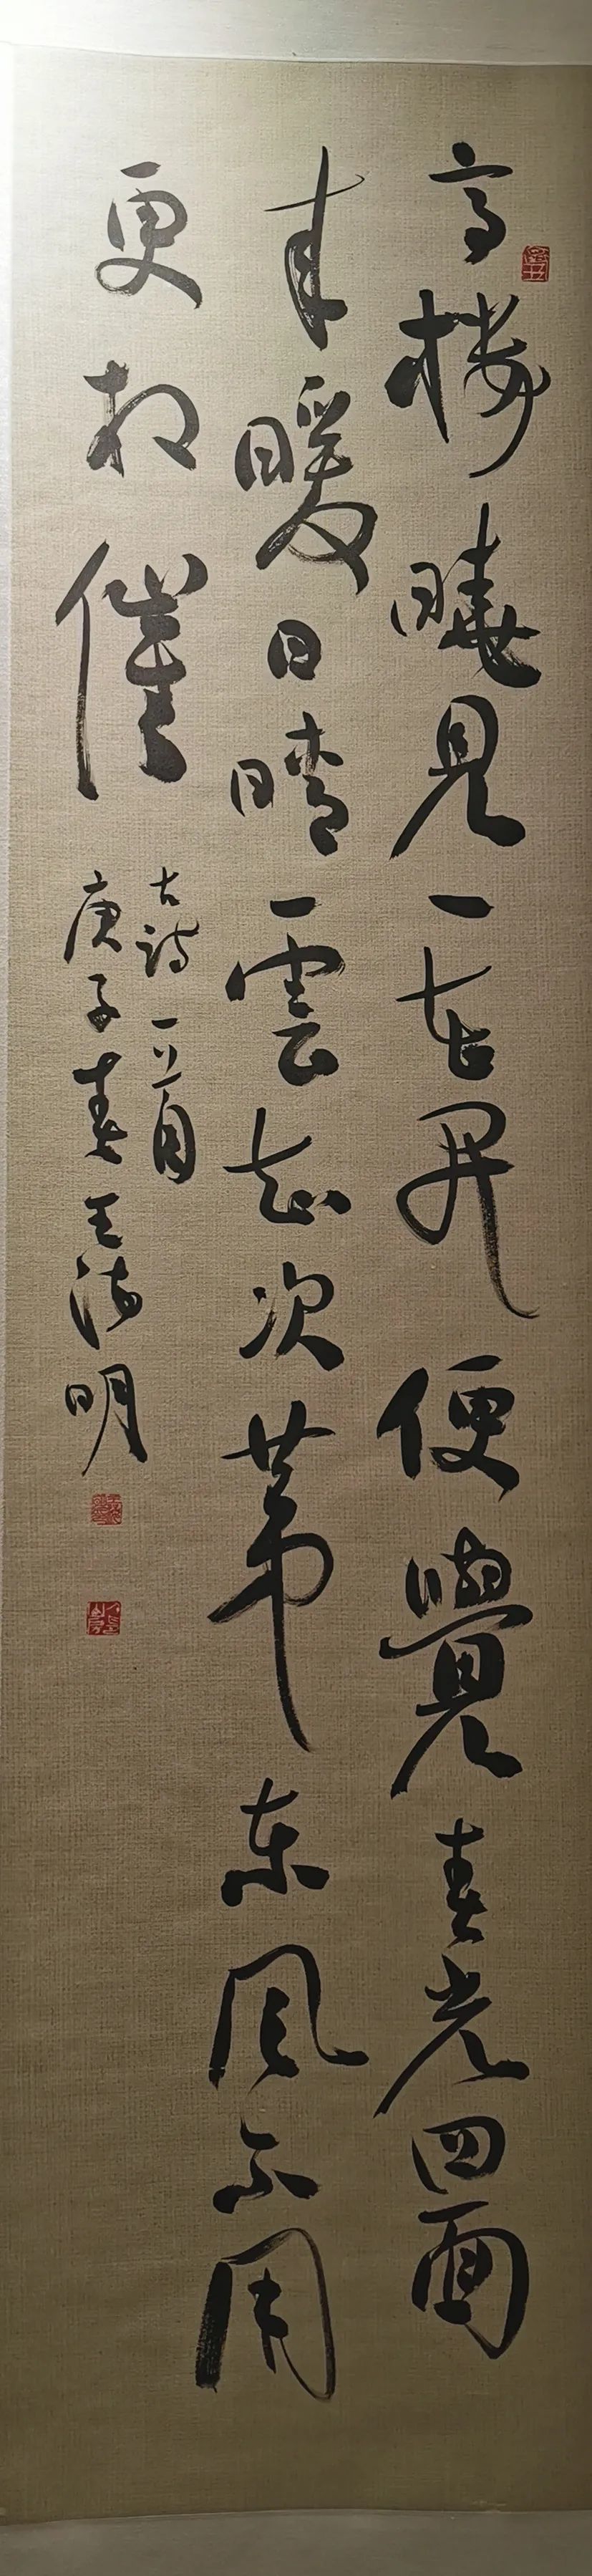 高樓曉見一花開便覺春光四面
來暖日晴雲知次第東風不用
更相催
古詩一首
庚子春王海明